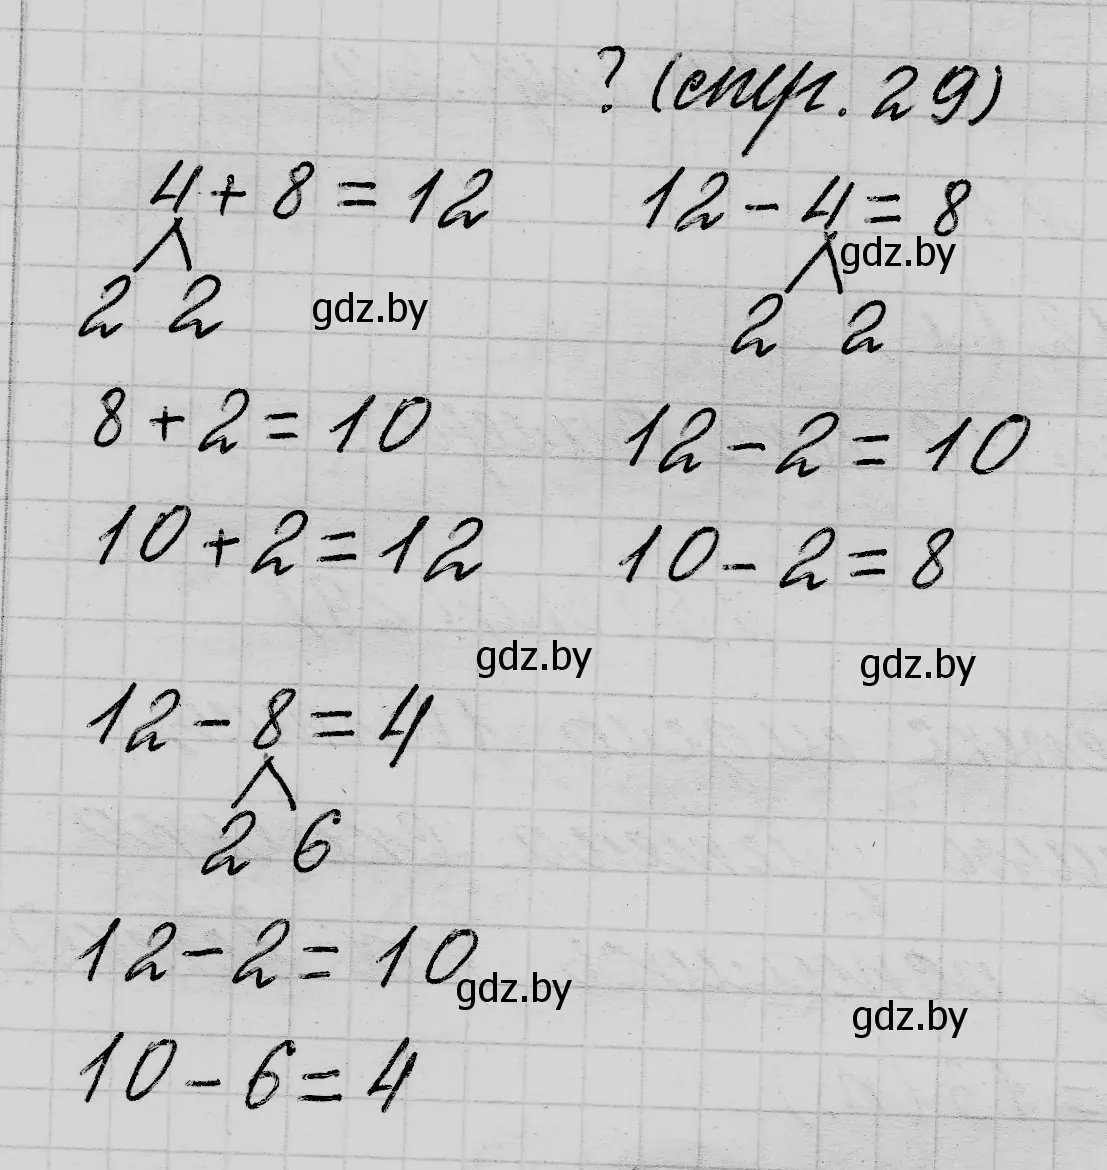 ? (стр. 29)
4 + 8 = 12
2 2
8 + 2 = 10
10 + 2 = 12
12 - 4 = 8
2 2
12 - 2 = 10
10 - 2 = 8
12 - 8 = 4
2 6
12 - 2 = 10
10 - 6 = 4
gdz.by
gdz.by
gdz.by
gdz.by
gdz.by
gdz.by